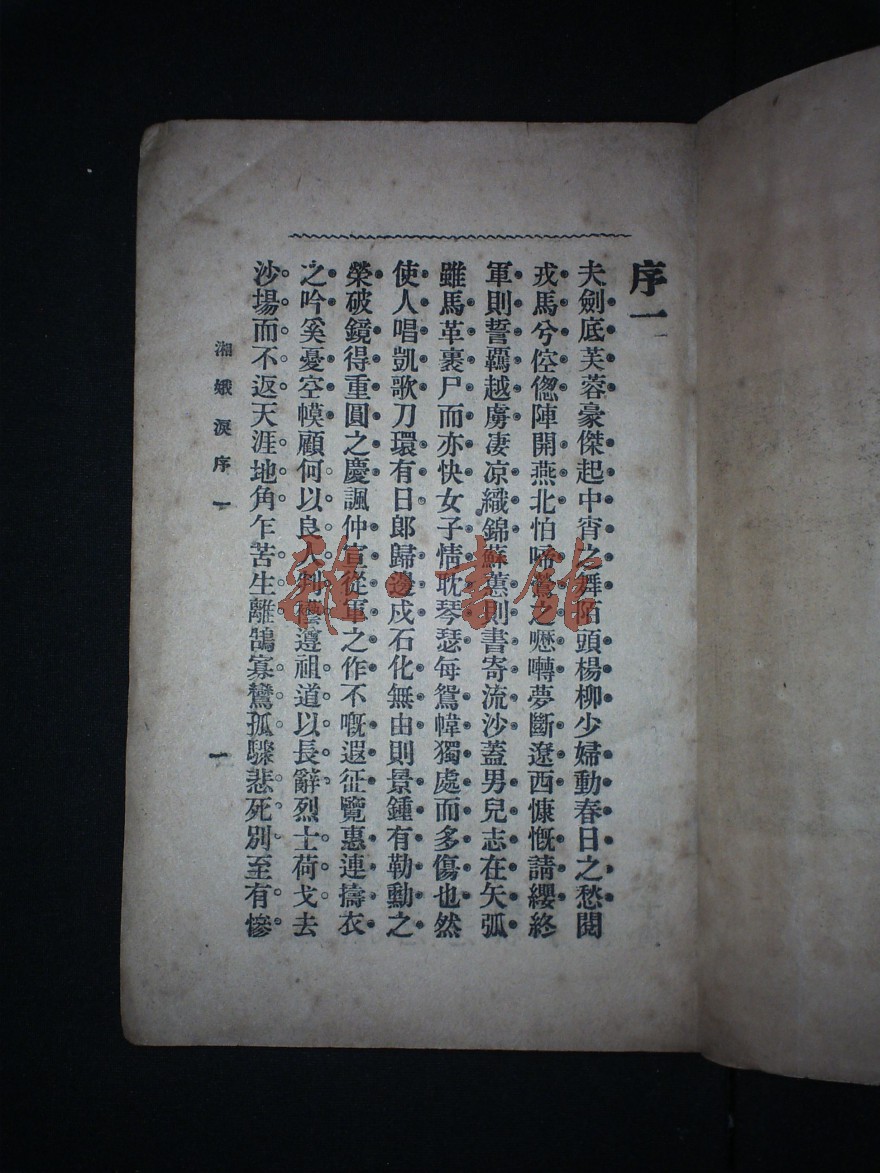 序一
夫劍底芙蓉豪傑起中宵之舞陌頭楊柳少婦動春日之愁閱
戎馬兮倥傯陣開燕北怕啼鶯之嚦囀夢斷遼西慷慨請纓終
軍則誓羈越虜凄凉織錦蘇蕙則書寄流沙蓋男兒志在矢弧
雖馬革裹尸而亦快女子情耽琴瑟每鴛幃獨處而多傷也然
使人唱凱歌刀環有日郎歸邊戍石化無由則景鍾有勒勳之
榮破鏡得重圓之慶諷仲宣從軍之作不嘅遐征覽惠連擣衣
之吟奚憂空幙顧何以良人判遵祖道以長辭烈士荷戈去
沙場而不返天涯地角乍苦生離鵠寡鸞孤驟悲死別至有慘
湘娥淚序一
一
雜·書館